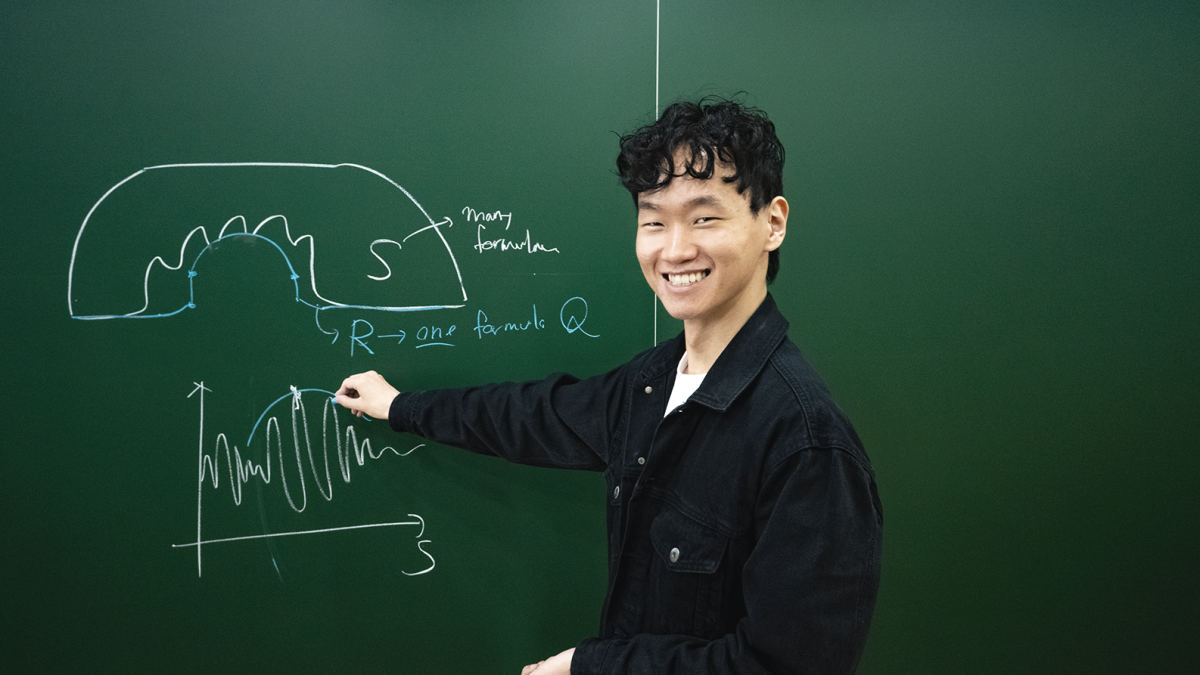 S → many
formulae
R → one formula Q
S